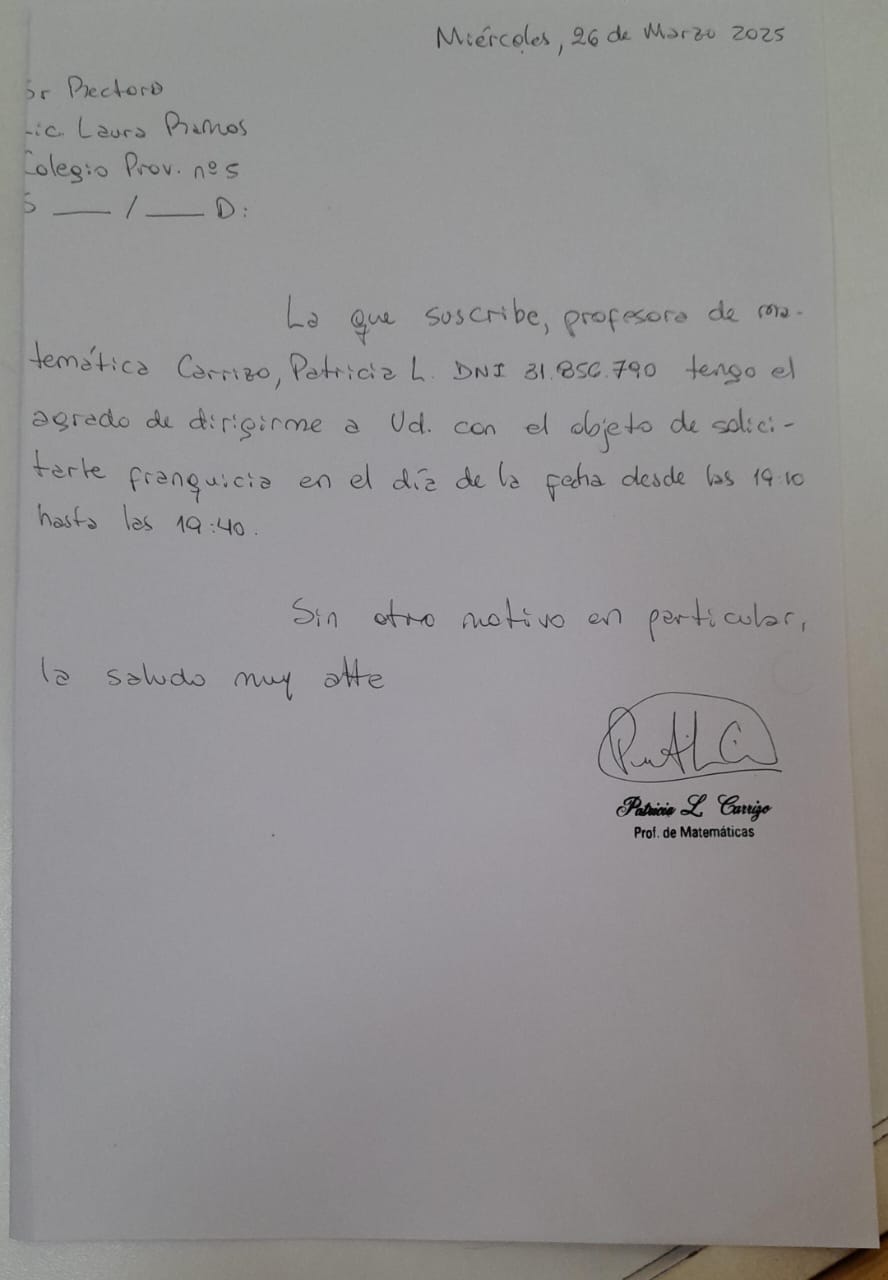 Miércoles, 26 de Marzo 2025
Sr Rectora
Lic. Laura Ramos
Colegio Prov. nº 5
S ___ / ___ D:
La que suscribe, profesora de ma-
temática Carrizo, Patricia L. DNI 31.856.790 tengo el
agrado de dirigirme a Ud. con el objeto de solici-
tarle franquicia en el día de la fecha desde las 19:10
hasta las 19:40.
Sin otro motivo en particular,
la saludo muy atte
Patricia L Carrizo
Prof. de Matemáticas